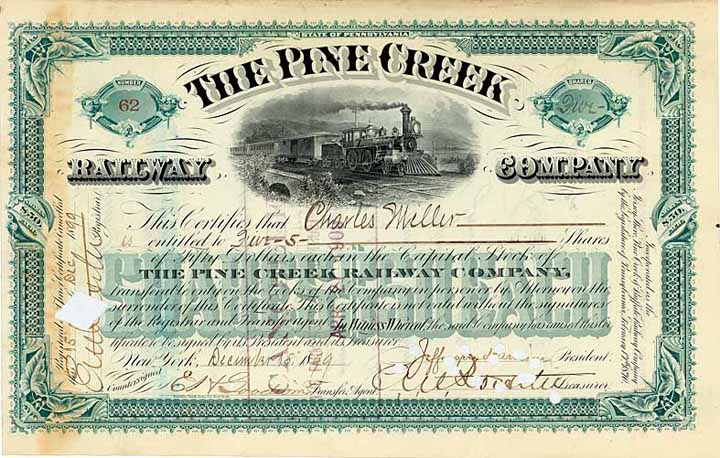 STATE OF PENNSYLVANIA
NUMBER
62
SHARES
Five
THE PINE CREEK
RAILWAY COMPANY
This Certifies that Charles Miller
is entitled to Five-5- Shares
of Fifty Dollars each in the Capital Stock of
THE PINE CREEK RAILWAY COMPANY,
transferable only on the Books of the Company in person or by Attorney on the
surrender of this Certificate. This Certificate is not valid without the signatures
of the Registrar and Transfer agent. In Witness Whereof the said Company has caused this Cer-
tificate to be signed by its President and its Treasurer.
New York, December 15, 1899
President.
Countersigned
Transfer Agent.
Treasurer.
SHARES
$50
EACH
SHARES
$50
EACH
Registrar
Incorporated as the
Jersey Shore, Pine Creek & Buffalo Railway Company
by the Legislature of Pennsylvania, February 17th 1870.